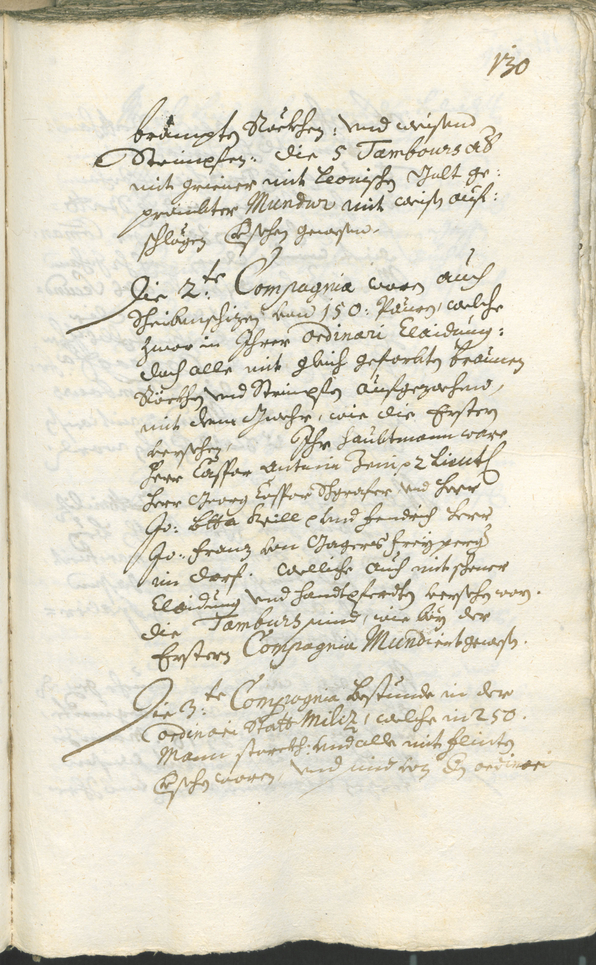 130
brämpten Röckhen: vnd weisend
Strimpfen: die 5 Tambours aber
mit griener mit Leonischen Golt ge:
prämbter Mundur mit weisen auf:
schlägen versechen gewesen.
Die 2.te Compagnia waren auch
Scheibenschizen von 150: Pauren, welche
zwar in Ihrer ordinari Claidung:
doch alle mit gleich geferbten braunen
Röckhen vnd Strimpfen aufgezochend,
mit dem Gwehr, wie die Ersten
versechen. Ihr Haubtmann ware
Herr Caspar Antoni Jenip 2 Lieut:
Herr Georg Caspar Schraser vnd Herr
Jo: Btta vnd Fendrich Herr
Jo: Franz von Jageregg Freyperg
im Dorf. welliche auch mit schener
Claidung vnd Handtpferdten versechen warn.
die Tamburs sind, wie bey der
Ersten Compagnia Mundiert gewesen.
Die 3.te Compagnia bestunde in der
ordinari Statt Miliz, welche in 250.
Mann starckh: vnd alle mit flinten
versechen waren, vnd sind von ordinari